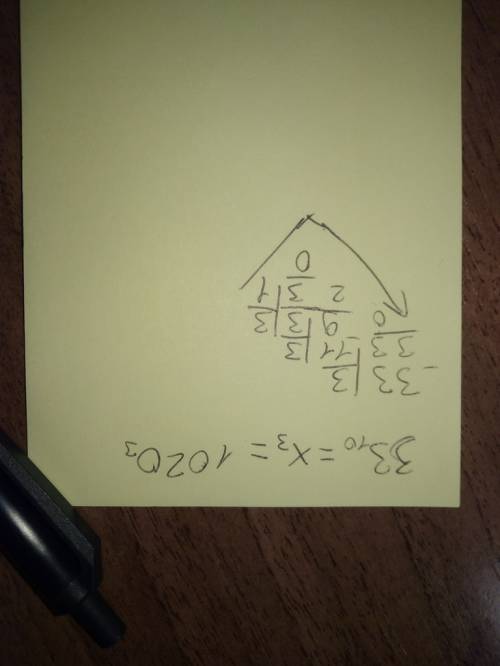 33₁₀ = x₃ = 1020₃
-33 | 3
33 | -11 | 3
0 9 | 3 | 3
2 3 | 1
0